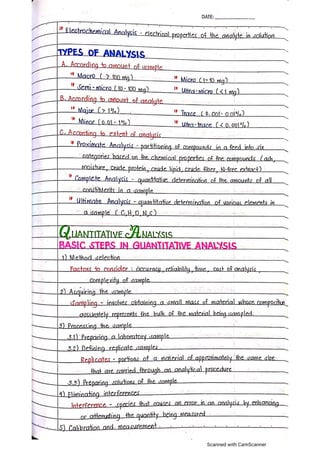 DATE:
* Electrochemical Analysis - electrical properties of the analyte in solution
TYPES OF ANALYSIS
A. According to amount of sample
* Macro ( > 100 mg)
* Micro (1-10 mg)
* Semi-micro (10 - 100 mg)
* Ultra-micro ( < 1 mg)
B. According to amount of analyte
* Major ( > 1%)
* Trace ( 0.001 - 0.01%)
* Minor ( 0.01 - 1%)
* Ultra-trace ( < 0.001%)
C. According to extent of analysis
* Proximate Analysis - partitioning of compounds in a feed into six
categories based on the chemical properties of the compounds ( ash,
moisture, crude protein, crude lipid, crude fiber, N-free extract)
* Complete Analysis - quantitative determination of the amounts of all
constituents in a sample
* Ultimate Analysis - quantitative determination of various elements in
a sample ( C,H,O,N,S)
QUANTITATIVE ANALYSIS
BASIC STEPS IN QUANTITATIVE ANALYSIS
1) Method selection
Factors to consider : accuracy, reliability, time, cost of analysis,
complexity of sample
2) Acquiring the sample
Sampling - involves obtaining a small mass of material whose composition
accurately represents the bulk of the material being sampled.
3) Processing the sample
3.1) Preparing a laboratory sample
3.2) Defining replicate samples
Replicates - portions of a material of approximately the same size
that are carried through an analytical procedure
3.3) Preparing solutions of the sample
4) Eliminating interferences
Interference - species that causes an error in an analysis by enhancing
or attenuating the quantity being measured
5) Calibration and measurement
Scanned with CamScanner